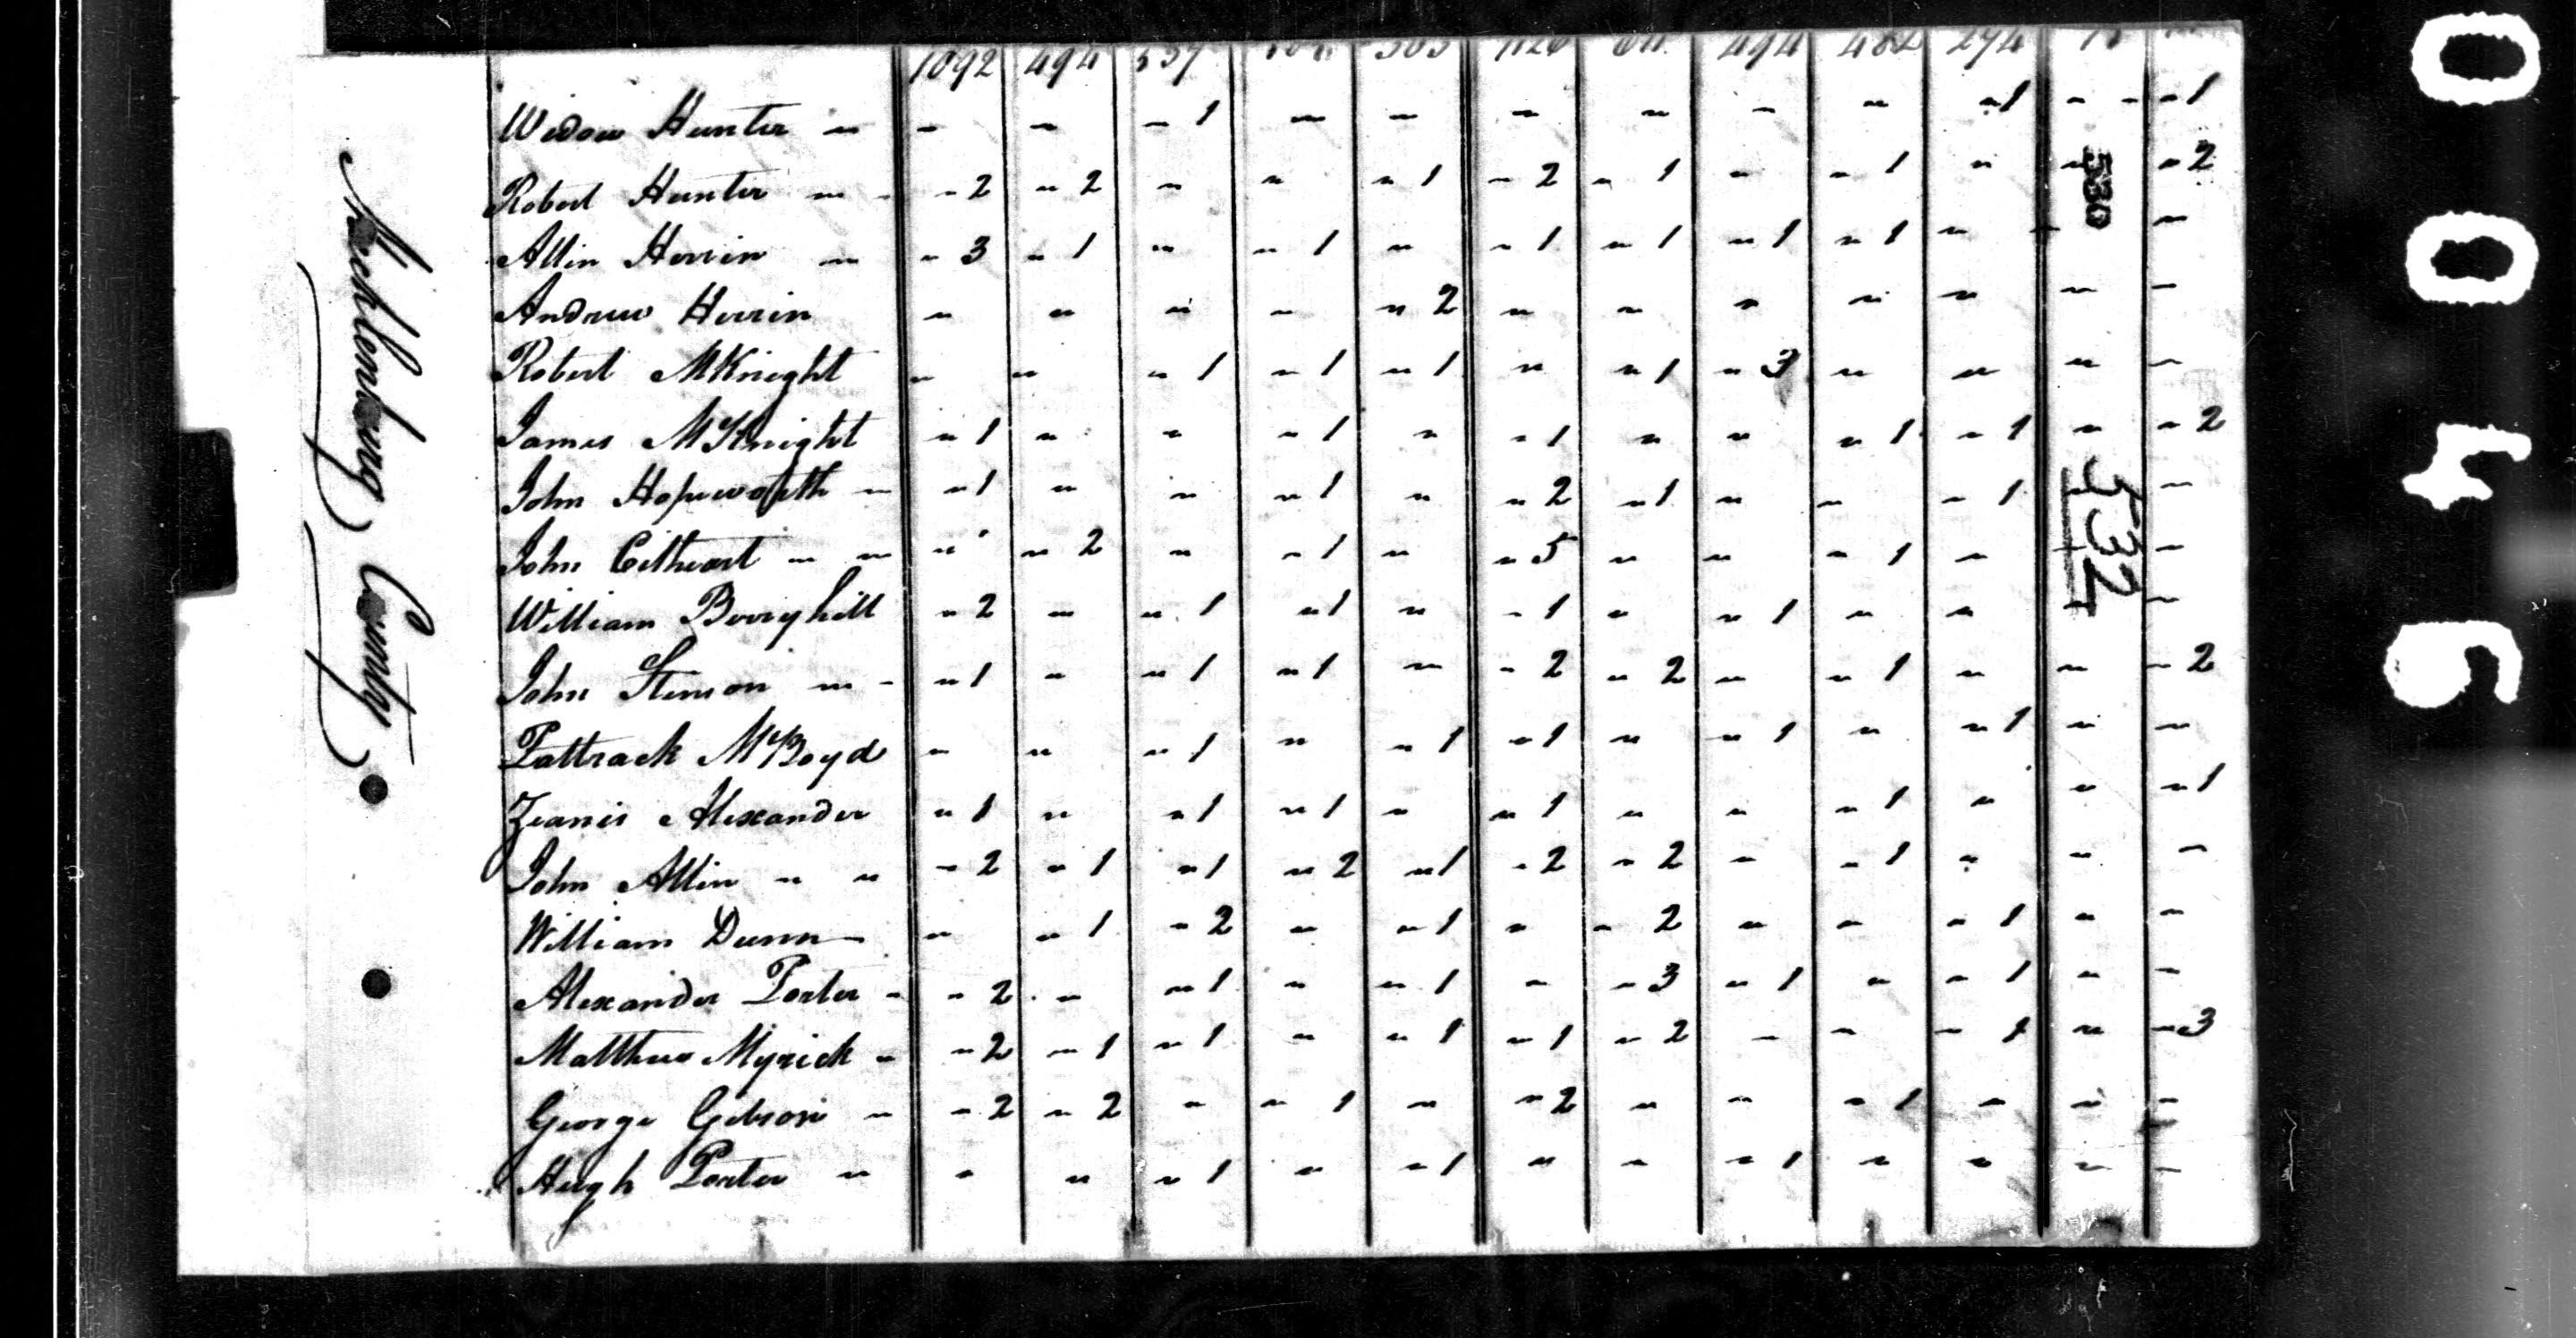 Mecklenburg County
1092 494 537 303 1126 611 494 482 274
Widow Hunter " " " "1 " " " " " " "1 " "1
Robert Hunter " "2 "2 " " "1 "2 "1 " "1 " " "2
Allin Herrin " "3 "1 " "1 " "1 "1 "1 "1 " " "
Andrew Herrin " " " " "2 " " " " " " "
Robert McKnight " " "1 "1 "1 " "1 "3 " " " "
James McKnight "1 " " "1 " "1 " " "1 "1 " "2
John Hopeworth " "1 " " "1 " "2 "1 " " "1 "
John Cithcart " " " "2 " "1 " "5 " " "1 " "
William Berryhill "2 " "1 "1 " "1 " "1 " " " "
John Stenson " "1 " "1 "1 " "2 "2 " "1 " " "2
Pattrack McBoyd " " "1 " "1 "1 " "1 " "1 " "
Zeanis Alexander "1 " "1 "1 " "1 " " "1 " " "1
John Allin " " "2 "1 "1 "2 "1 "2 "2 " "1 " " "
William Dunn " "1 "2 " "1 " "2 " " "1 " "
Alexander Porter " "2 " "1 " "1 " "3 "1 " "1 " "
Matthew Myrick " "2 "1 "1 " "1 "1 "2 " " "1 " "3
George Gibson " "2 "2 " "1 " "2 " " "1 " " "
Hugh Porter " " " "1 " "1 " " "1 " " " "
580
532
0 0 4 9